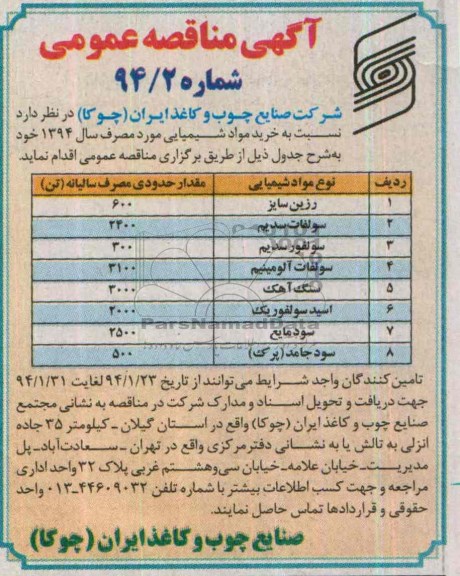 آگهی مناقصه عمومی
شماره ۹۴/۲
شرکت صنایع چوب و کاغذ ایران (چوکا) در نظر دارد
نسبت به خرید مواد شیمیایی مورد مصرف سال ۱۳۹۴ خود
به‌شرح جدول ذیل از طریق برگزاری مناقصه عمومی اقدام نماید.
ردیف نوع مواد شیمیایی مقدار حدودی مصرف سالیانه (تن)
۱ رزین سایز ۶۰۰
۲ سولفات سدیم ۲۴۰۰
۳ سولفور سدیم ۳۰۰
۴ سولفات آلومینیم ۳۱۰۰
۵ سنگ آهک ۳۰۰۰
۶ اسید سولفوریک ۲۰۰۰
۷ سود مایع ۲۵۰۰
۸ سود جامد (پرک) ۵۰۰
ParsNamadData
تامین کنندگان واجد شرایط می‌توانند از تاریخ ۹۴/۱/۲۳ لغایت ۹۴/۱/۳۱
جهت دریافت و تحویل اسناد و مدارک شرکت در مناقصه به نشانی مجتمع
صنایع چوب و کاغذ ایران (چوکا) واقع در استان گیلان - کیلومتر ۳۵ جاده
انزلی به تالش یا به نشانی دفتر مرکزی واقع در تهران - سعادت‌آباد - پل
مدیریت - خیابان علامه - خیابان سی‌و‌هشتم غربی پلاک ۳۲ واحد اداری
مراجعه و جهت کسب اطلاعات بیشتر با شماره تلفن ۴۴۶۰۹۰۳۲-۰۱۳ واحد
حقوقی و قراردادها تماس حاصل نمایند.
صنایع چوب و کاغذ ایران (چوکا)